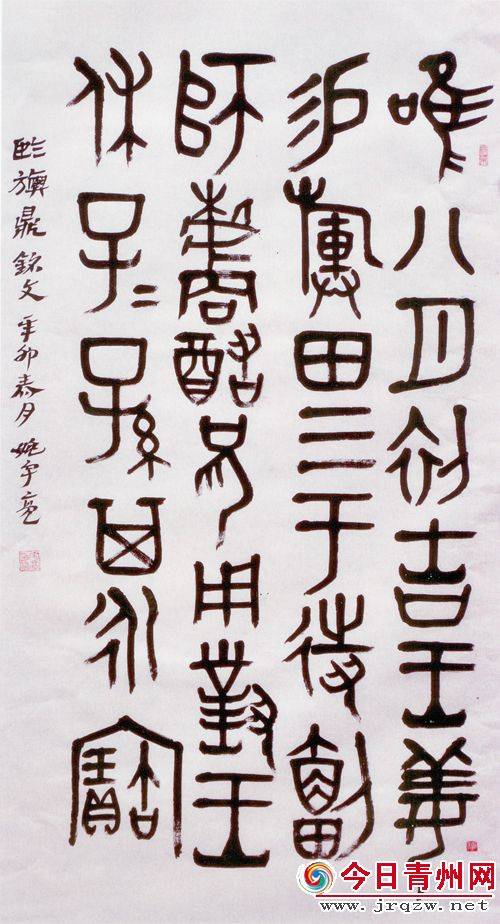 唯八月初吉王姜
田三于待
師酷兄用對王
休子=孫其永寶
旟鼎銘文 辛卯春月 姚宇亮
今日青州网
www.jrqzw.net